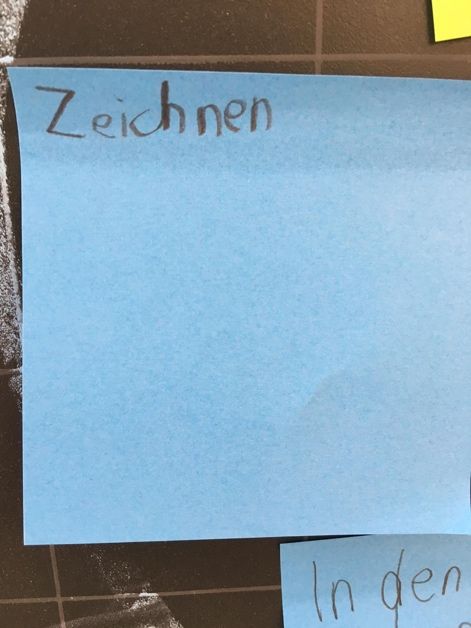 Zeichnen
In den